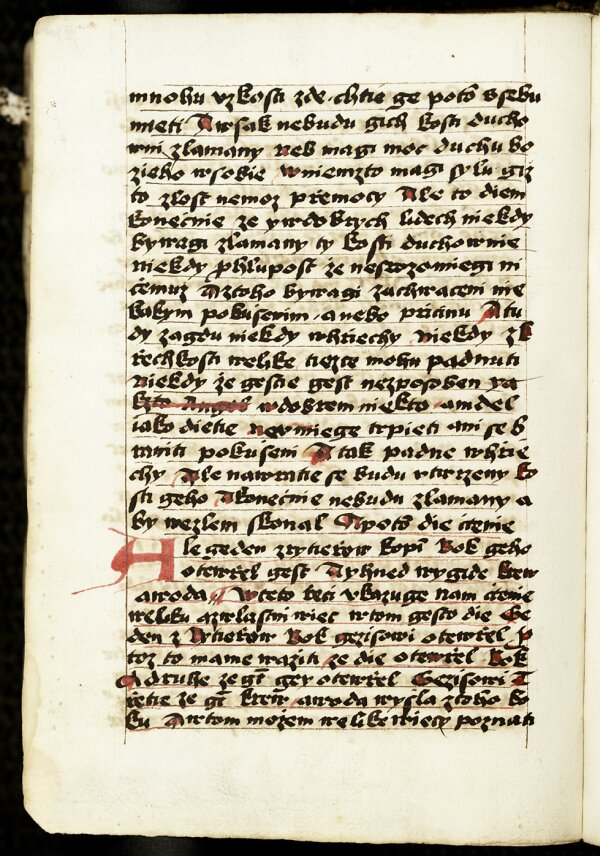 mnohu vzkosti zde chtie ge potō vsebu
mieti A wsak nebudu gich kosti ducho
wni zlamany neb magi moc duchu bo
zieho w sobie w niemzto magi sylu giz
to zlost nemoz přemocy Ale to diem
konečnie ze y w dobrych lidech niekdy
bywagi zlamany ty kosti duchownie
niekdy phlupost že nesrozomiegi ni
čemuz A ztoho bywagi zachwaceni nie
kakym pokusenim a nebo pričinu A tu
dy zagdu niekdy whriechy niekdy zk
řechkosti welike tiezce mohu padnuti
niekdy že gestie gest nezposoben ya
kzto Angel w dobrem niekto amdel
iako dietie neumiege trpieti ani se b
raniti pokuseni A tak padne whrie
chy Ale nawratie se budu vtwrzeny ko
sti geho A konečnie nebudu zlamany a
by wezlem skonal A potō die čtenie
Ale geden zrytierow kopi bok geho
otewřel gest A yhned wygide krew
a woda W teto řeči vkazuge nam čtenie
weliku a zwlastni wiec w tom gesto die Ge
den z Rytierow bok gezisowi otewřel p
toz to mame waziti ze die otewřel bok
A druhe ze gt gey otewřel Gezisowi T
řetie že gt krew a woda wysla z toho bo
ku A w tom možem welike wiecy poznati